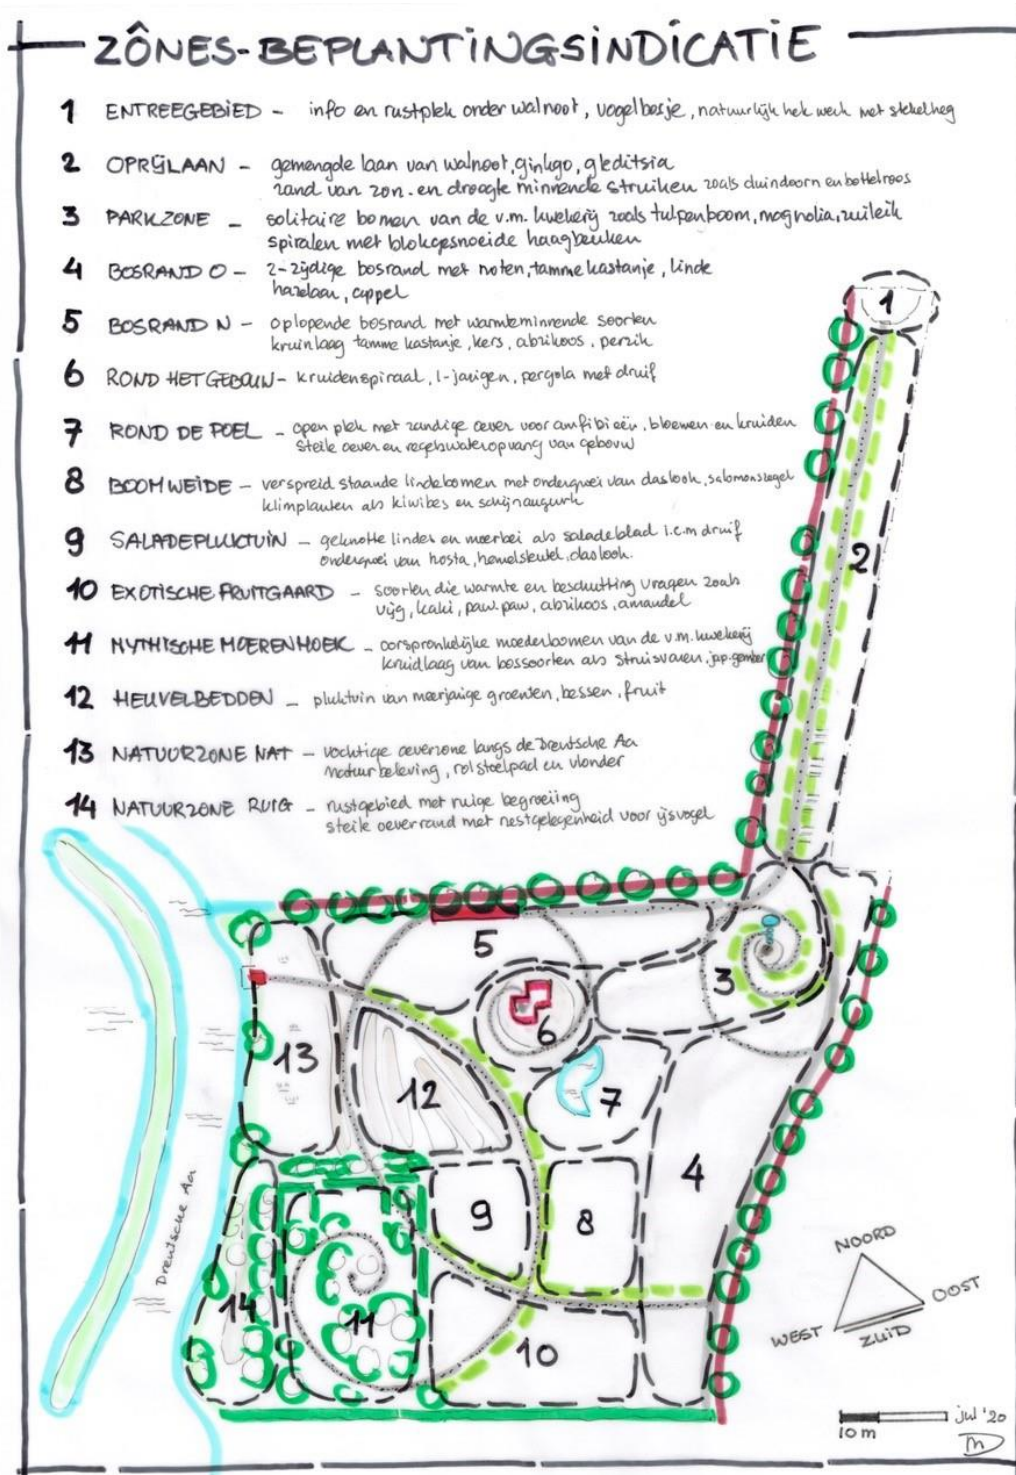 ZÔNES-BEPLANTINGSINDICATIE
1 ENTREEGEBIED - info en rustplek onder walnoot, vogelbosje, natuurlijk hekwerk met stekelheg
2 OPRIJLAAN - gemengde laan van walnoot, ginkgo, gleditsia
rand van zon- en droogte minnende struiken zoals duindoorn en bottelroos
3 PARKZONE - solitaire bomen van de v.m. kwekerij zoals tulpenboom, magnolia, zuileik
spiralen met blokgesnoeide haagbeuken
4 BOSRAND O - 2-zijdige bosrand met noten, tamme kastanje, linde
hazelaar, appel
5 BOSRAND N - oplopende bosrand met warmteminnende soorten
kruinlaag tamme kastanje, kers, abrikoos, perzik
6 ROND HET GEBOUW - kruidenspiraal, 1-jarigen, pergola met druif
7 ROND DE POEL - open plek met zandige oever voor amfibieën, bloemen en kruiden
steile oever en regenwateropvang van gebouw
8 BOOMWEIDE - verspreid staande lindebomen met ondergroei van daslook, salomonszegel
klimplanten als kiwibes en schijnaugurk
9 SALADEPLUKTUIN - geknotte lindes en moerbei als saladeblad i.c.m druif
ondergroei van hosta, hemelsleutel, daslook.
10 EXOTISCHE FRUITGAARD - soorten die warmte en beschutting vragen zoals
vijg, kaki, paw.paw, abrikoos, amandel
11 MYTHISCHE MOERENHOEK - oorspronkelijke moederbomen van de v.m. kwekerij
kruidlaag van bossoorten als struisvaren, jap.gember
12 HEUVELBEDDEN - pluktuin van meerjarige groenten, bessen, fruit
13 NATUURZONE NAT - vochtige oeverzone langs de Drentsche Aa
natuurbeleving, rolstoelpad en vlonder
14 NATUURZONE RUIG - rustgebied met ruige begroeiing
steile oeverrand met nestgelegenheid voor ijsvogel
1
2
5
3
6
13
12
7
4
9
8
Drentsche Aa
14
11
10
NOORD
OOST
WEST
ZUID
10 m
jul '20